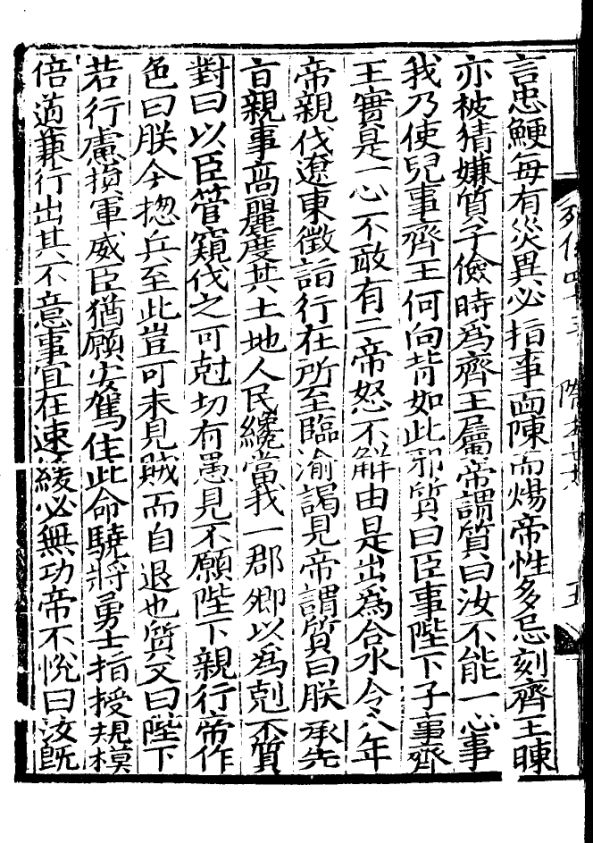 言忠鯁每有災異必指事面陳而煬帝性多忌刻齊王暕
亦被猜嫌質子儉時爲齊王屬帝謂質曰汝不能一心事
我乃使兒事齊王何向背如此邪質曰臣事陛下子事齊
王實是一心不敢有二帝怒不解由是出爲合水令八年
帝親伐遼東徵詣行在所至臨渝謁見帝謂質曰朕承先
旨親事高麗度其土地人民纔當我一郡卿以爲剋不質
對曰以臣管窺伐之可尅切有愚見不願陛下親行帝作
色曰朕今揔兵至此豈可未見賊而自退也質又曰陛下
若行慮損軍威臣猶願安駕住此命驍將勇士指授規模
倍道兼行出其不意事宜在速緩必無功帝不悅曰汝旣